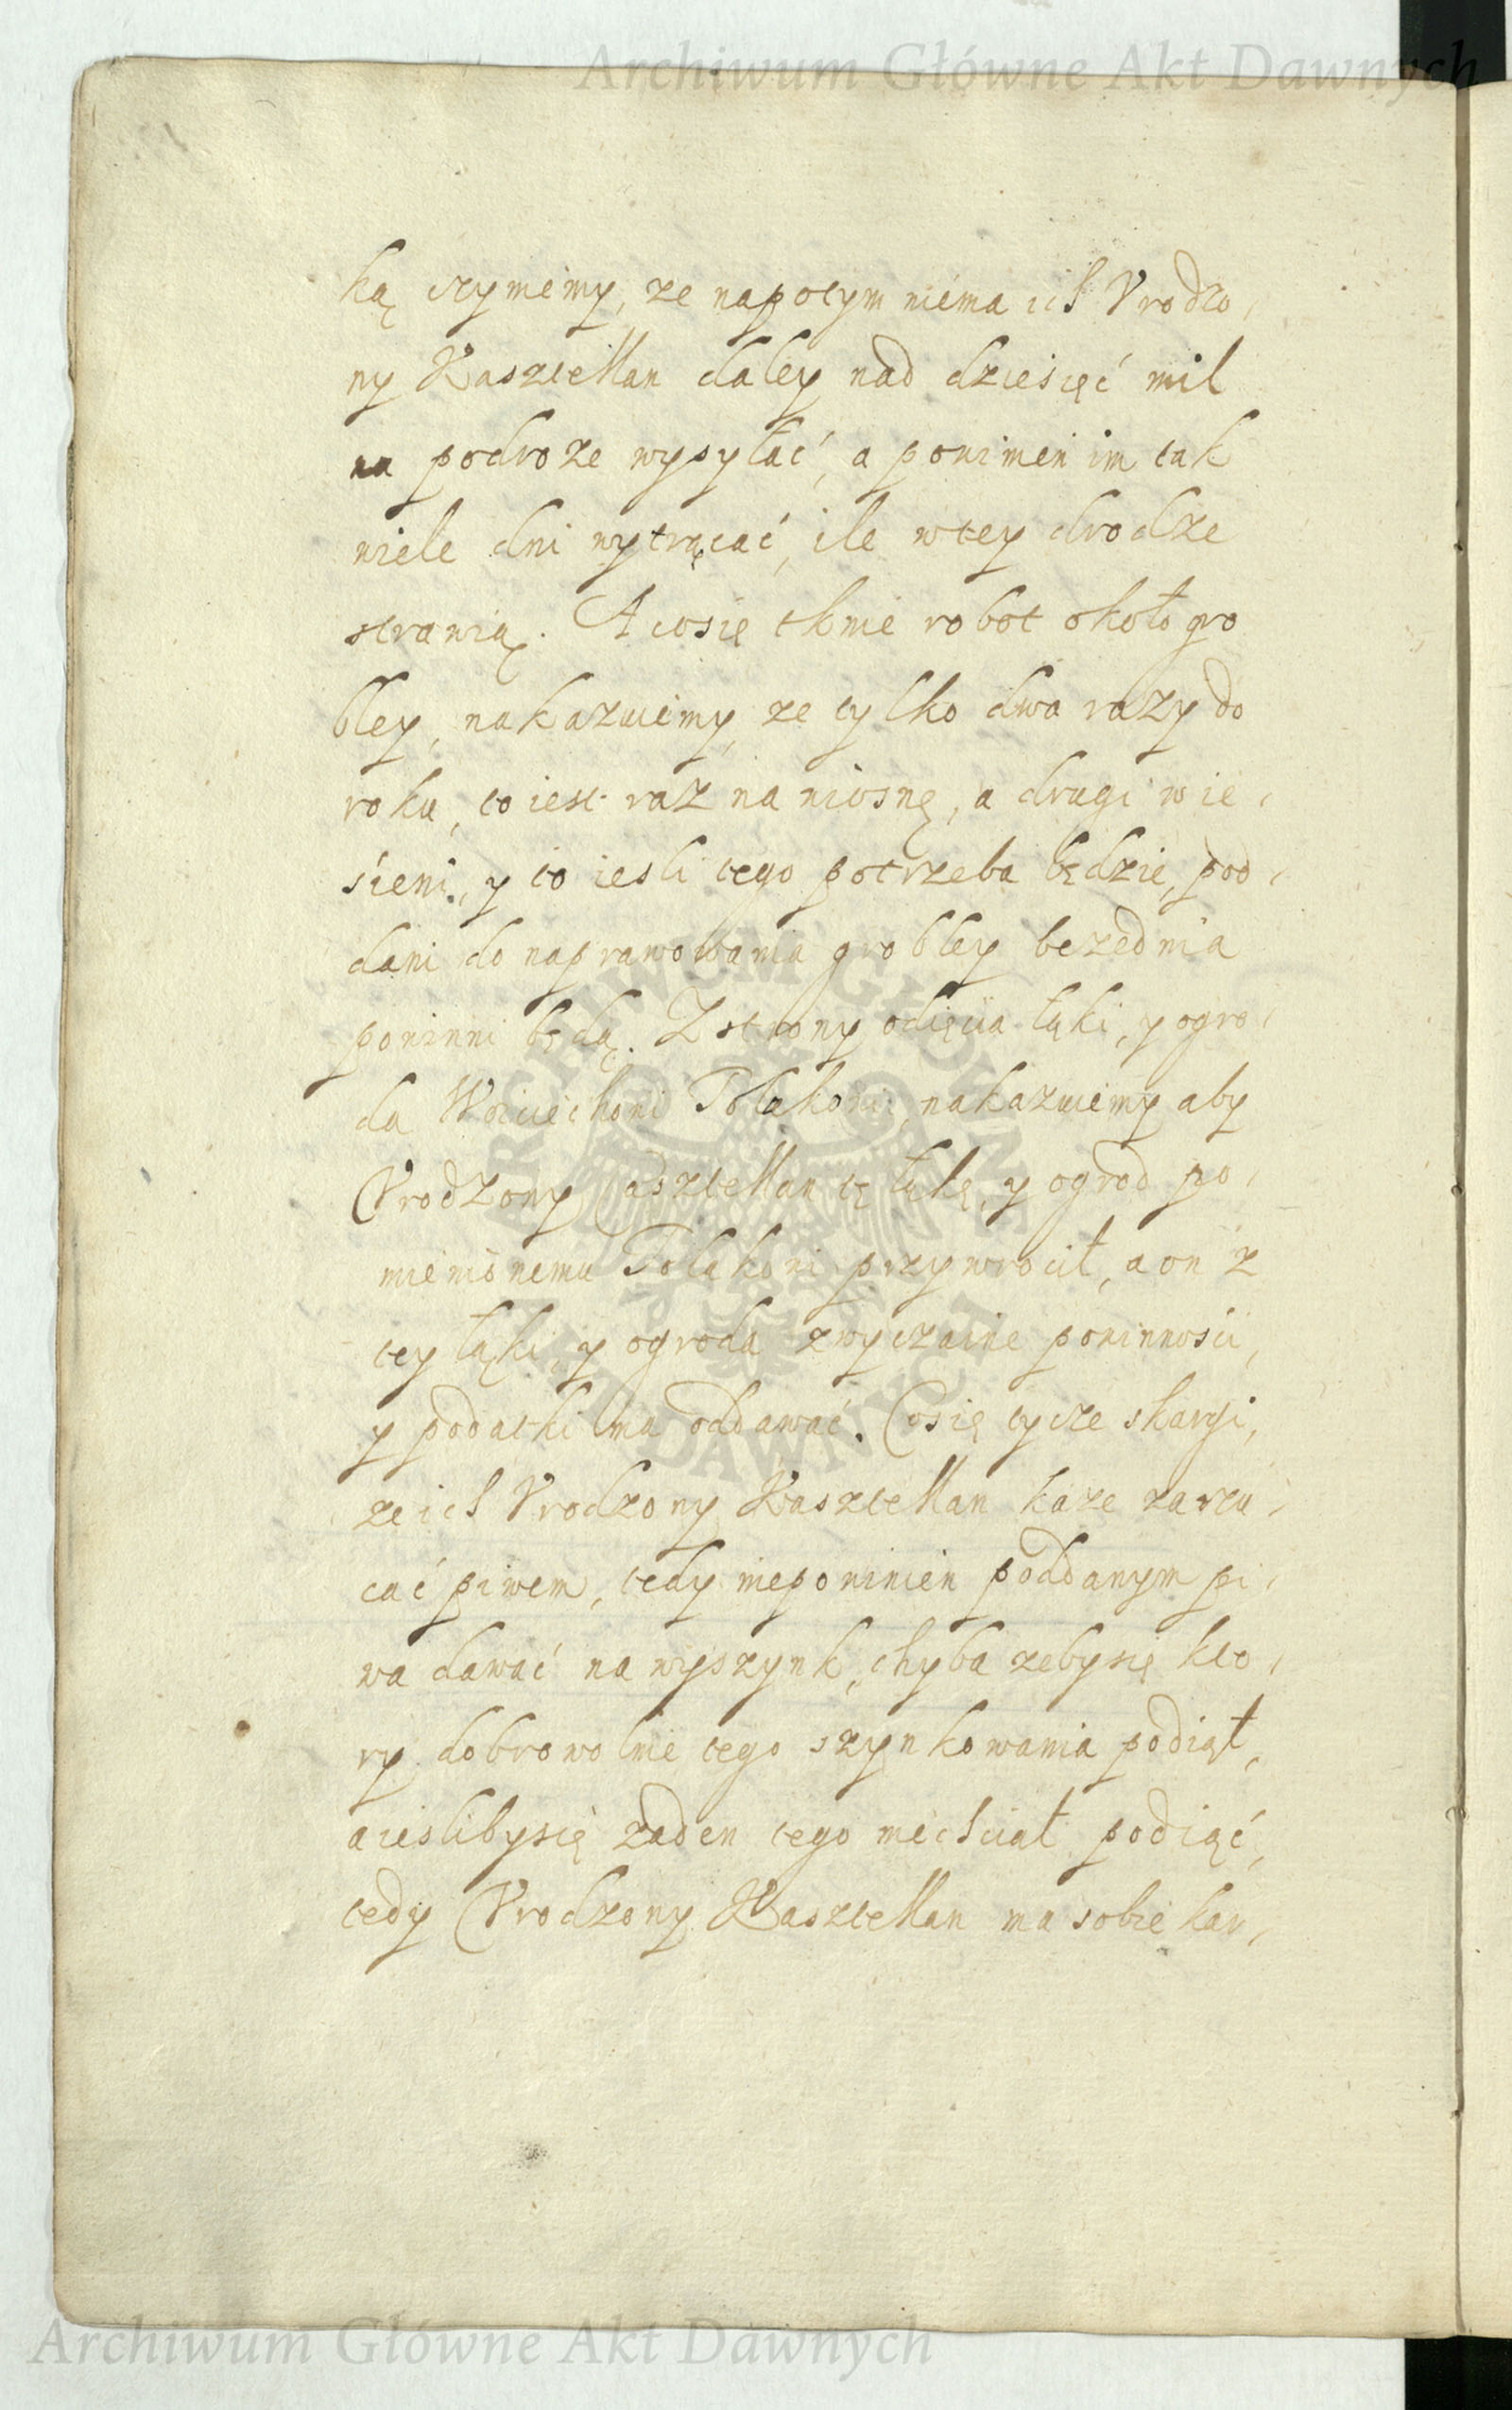 Archiwum Główne Akt Dawnych
ką czyniemy, ze napotym niema ich Vrodzo,
ny Kasztellan daley nad dziesięć mil
na podroze wysyłać, a powinien im tak
wiele dni wytrącać, ile wtey drodze
strawią. A cosię tknie robot około gro
bley, nakazuiemy, ze tylko dwa razy do
roku, to iest raz na wiosnę, a drugi w ie,
sieni, y to iesli tego potrzeba będzie, pod,
dani do naprawowania grobley bezednia
powinni będą. Z strony odięcia łąki, y ogro,
da Woiciechowi Polakowi, nakazuiemy aby
Vrodzony Casztellan tę łąkę, y ogrod po,
mienionemu Polakowi przywrocił, a on z
tey łąki, y ogroda zwyczaine powinności,
y podatki ma oddawać. Cosię tycze skargi,
ze ich Vrodzony Kasztellan kaze zarzu,
cać piwem, tedy niepowinien poddanym pi,
wa dawać na wyszynk, chyba zebysię kto,
ry dobrowolnie tego szynkowania podiął,
aieslibysię zaden tego niechciał podiąć,
tedy Vrodzony Kasztellan ma sobie kar,
ARCHIWUM GŁÓWNE AKT DAWNYCH
Archiwum Główne Akt Dawnych